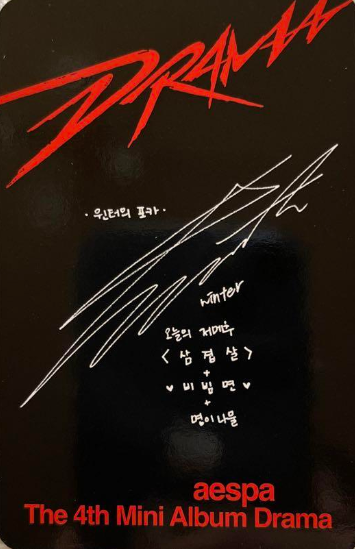 DRAMA
· 윈터의 포카 ·
winter
오늘의 저메추
< 삼겹살 >
+
♥ 비빔면 ♥
+
명이나물
aespa
The 4th Mini Album Drama